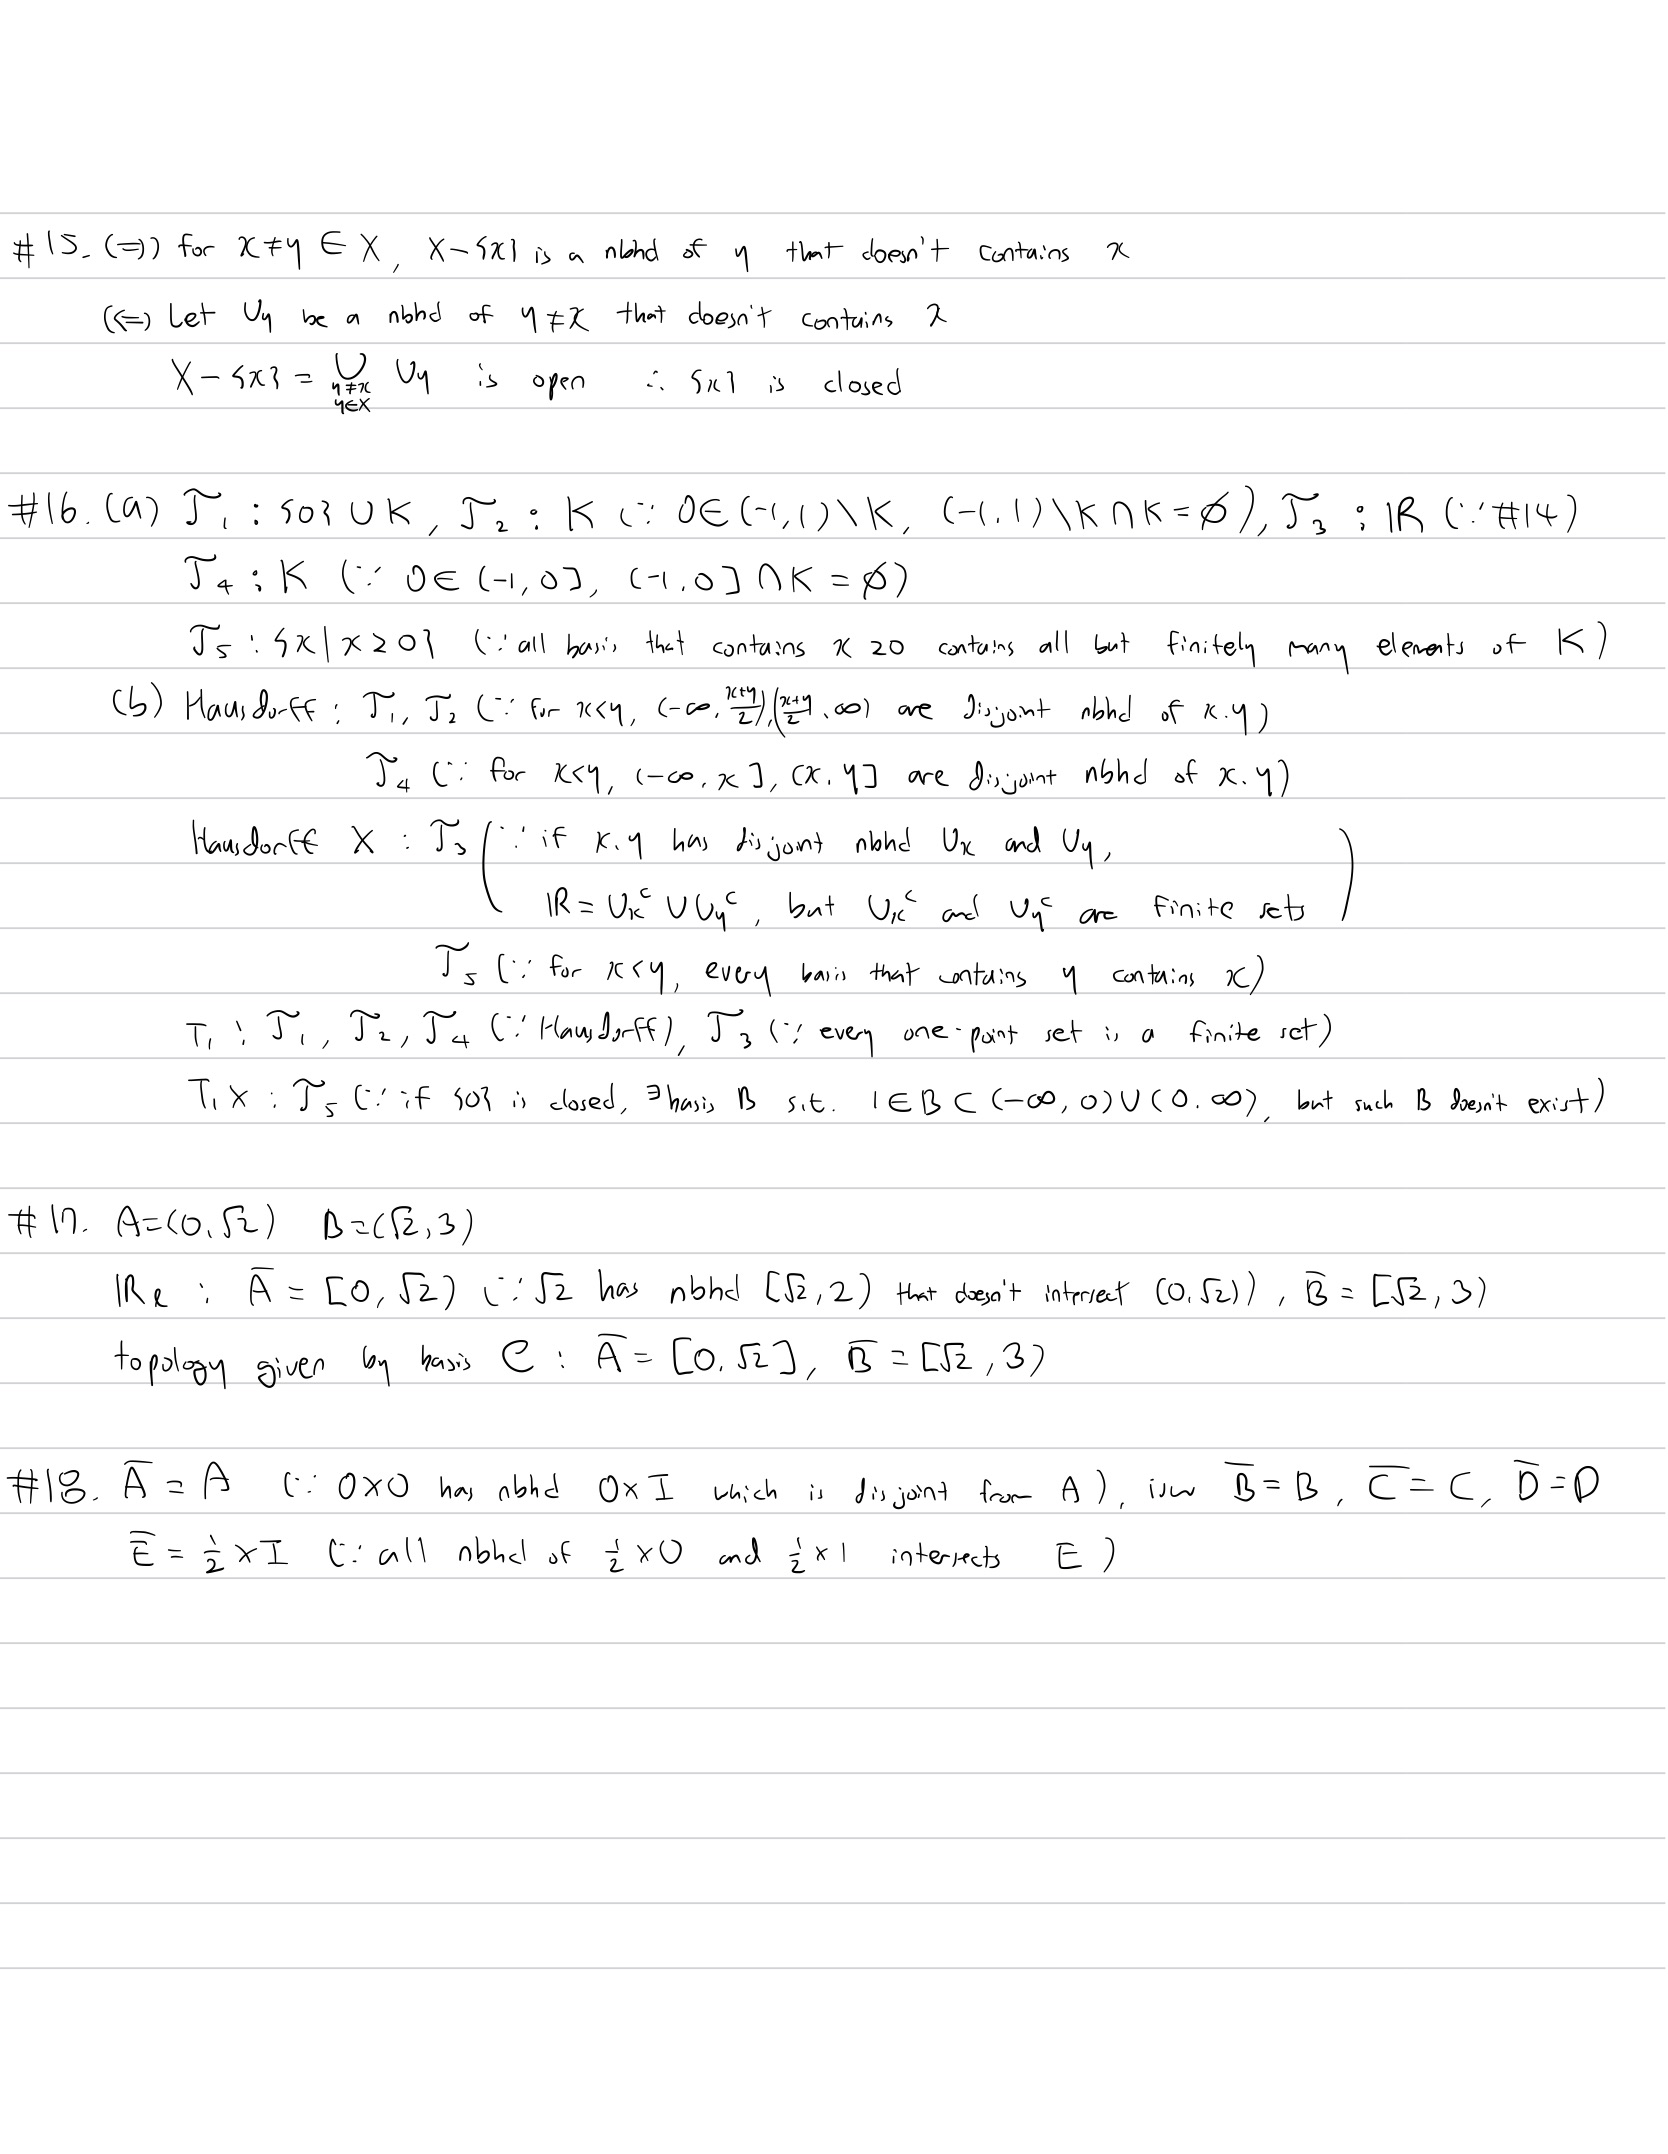 #15. (⇒) for x≠y ∈ X, X-{x} is a nbhd of y that doesn't contains x
(⇐) Let Uy be a nbhd of y≠x that doesn't contains x
X-{x} = ∪ Uy is open ∴ {x} is closed
y≠x
y∈X
#16. (a) 𝒯₁ : {0} ∪ K, 𝒯₂ : K (∵ 0∈(-1,1)\K, (-1,1)\K ∩ K = ∅), 𝒯₃ : ℝ (∵ #14)
𝒯₄ : K (∵ 0∈(-1,0], (-1,0] ∩ K = ∅)
𝒯₅ : {x | x≥0} (∵ all basis that contains x≥0 contains all but finitely many elements of K)
(b) Hausdorff : 𝒯₁, 𝒯₂ (∵ for x<y, (-∞, (x+y)/2), ((x+y)/2, ∞) are disjoint nbhd of x,y)
𝒯₄ (∵ for x<y, (-∞, x], (x, y] are disjoint nbhd of x,y)
Hausdorff X : 𝒯₃ (∵ if x,y has disjoint nbhd Ux and Uy,
ℝ = Uxᶜ ∪ Uyᶜ, but Uxᶜ and Uyᶜ are finite sets)
𝒯₅ (∵ for x<y, every basis that contains y contains x)
T₁ : 𝒯₁, 𝒯₂, 𝒯₄ (∵ Hausdorff), 𝒯₃ (∵ every one-point set is a finite set)
T₁ X : 𝒯₅ (∵ if {0} is closed, ∃basis B s.t. 1∈B⊂(-∞,0)∪(0,∞), but such B doesn't exist)
#17. A=(0,√2) B=(√2,3)
ℝℓ : A̅ = [0,√2) (∵ √2 has nbhd [√2,2) that doesn't intersect (0,√2)), B̅ = [√2,3)
topology given by basis C : A̅ = [0,√2], B̅ = [√2,3)
#18. A̅ = A (∵ 0×0 has nbhd 0×I which is disjoint from A), B̅=B, C̅=C, D̅=D
E̅ = ½×I (∵ all nbhd of ½×0 and ½×1 intersects E)